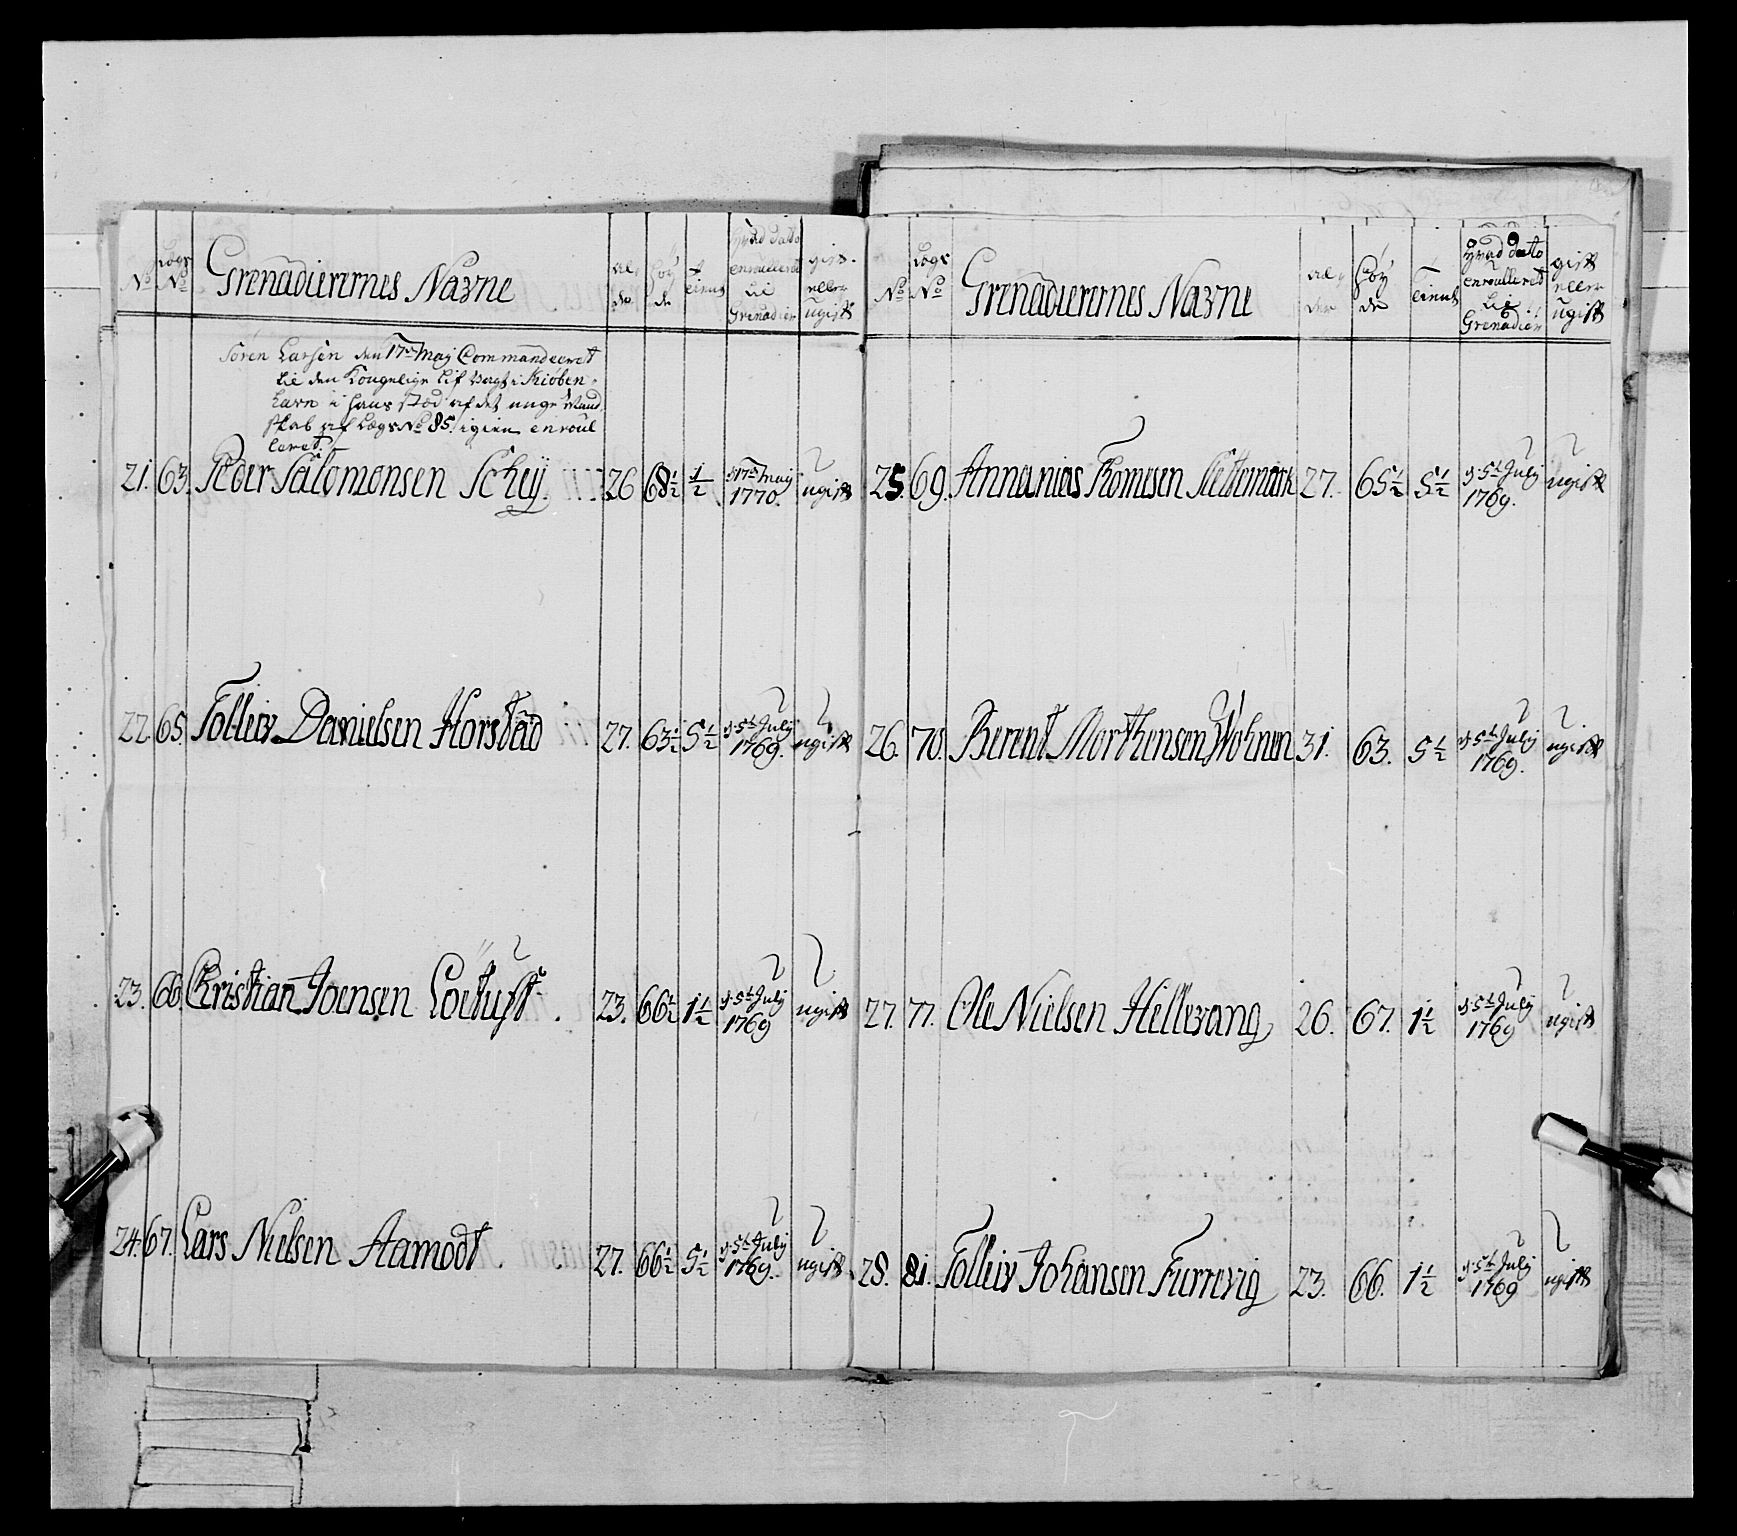 No
Lægs No
Grenadierernes Navne
al, der
Høy de
tienst
Hvad dato enroulleret til Grenadier
gift eller ugift
Søren Larsen den 17de Maij Commandeeret
til den Kongelige Lif Vagt i Kiøben
havn i hans stæd af det unge Mand
skab af Lægs No 85. igien enroul
leret.
21. 63. Peder Salomonsen Scheij 26 68½ ½ d: 17de Maij 1770. ugift
22. 65. Tolleiv Danielsen Horstad 27. 63½ 5½ d: 5te Julij 1769. ugift
23. 66. Christian Joensen 23. 66½ 1½ d: 5te Julij 1769 ugift
24. 67. Lars Nielsen Aamodt. 27. 66½ 5½ d: 5te Julij 1769. ugift
No
Lægs No
Grenadierernes Navne
al, der
Høy de
tienst
Hvad dato enroulleret til Grenadier
gift eller ugift
25. 69. Annanias Thomesen 27. 65½ 5½ d: 5te Julij 1769. ugift
26. 70. Berent Morthensen 31. 63. 5½ d: 5te Julij 1769. ugift
27. 77. Ole Nielsen Hillevang 26. 67. 1½ d: 5te Julij 1769 ugift
28. 81. Tolleiv Johansen Furrevig 23. 66. 1½ d: 5te Julij 1769 ugift